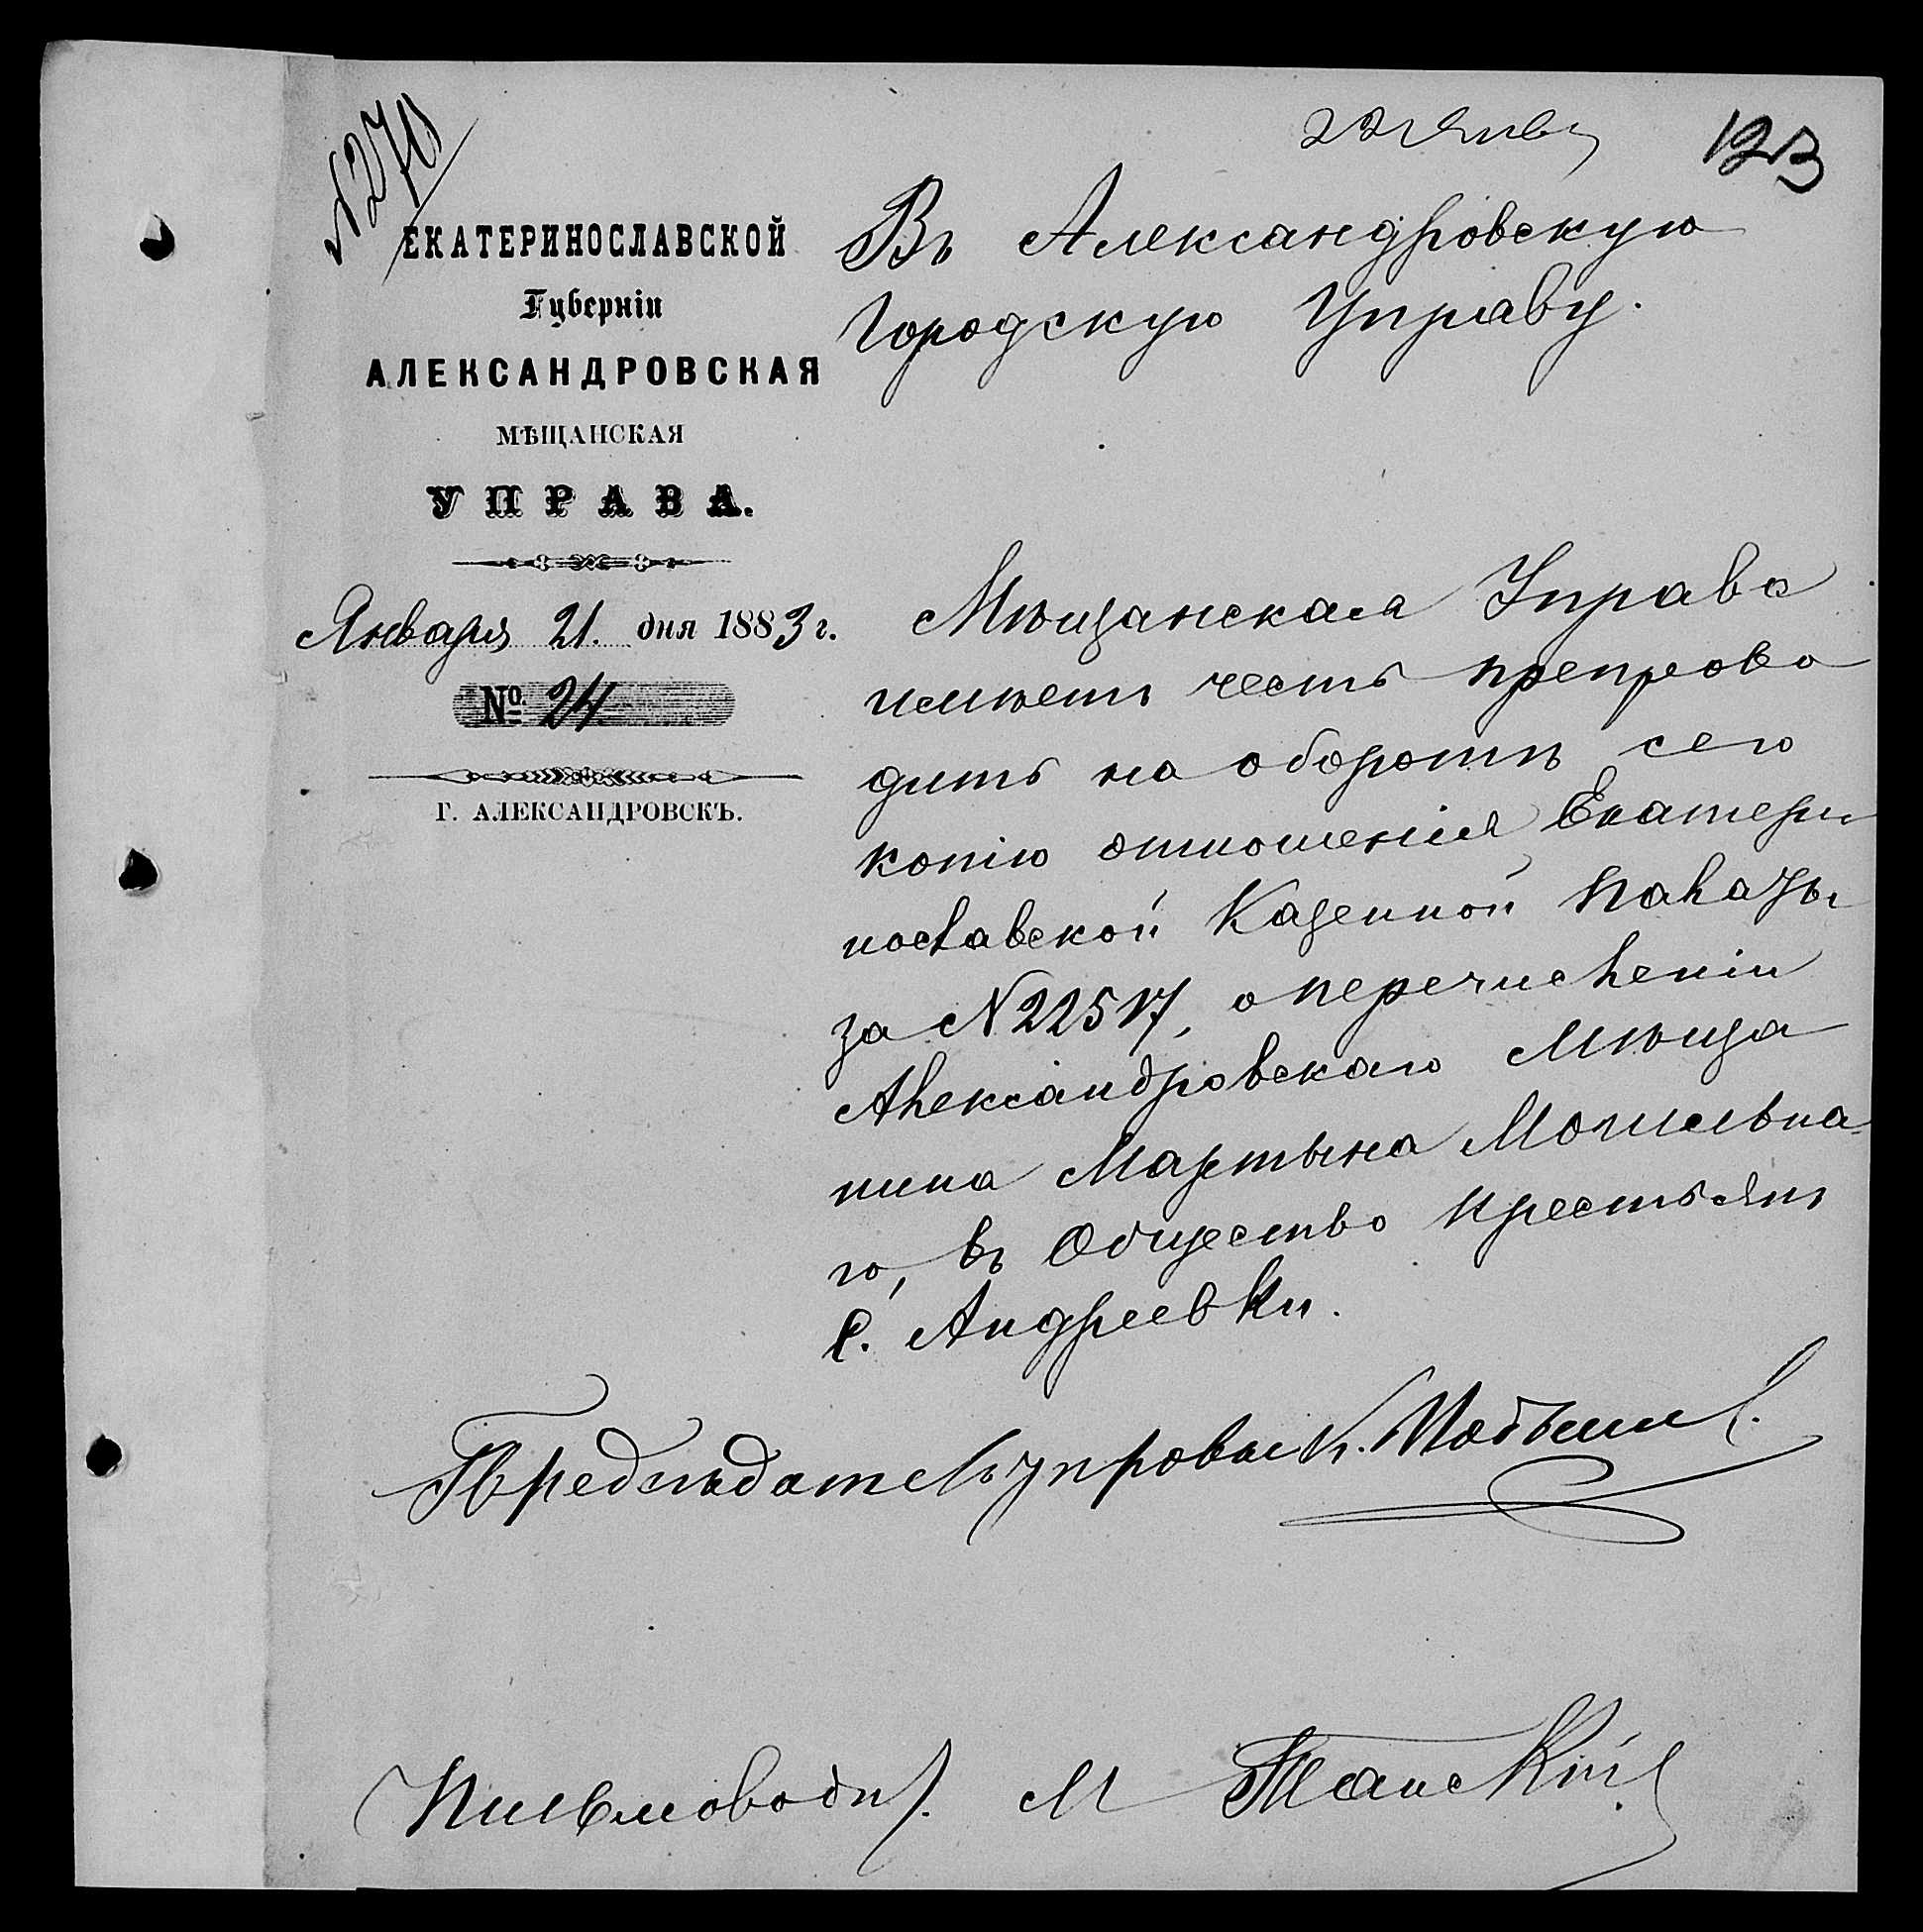 №270
22 Янв
123
ЕКАТЕРИНОСЛАВСКОЙ
Губерніи
АЛЕКСАНДРОВСКАЯ
МѢЩАНСКАЯ
УПРАВА.
Января 21. дня 1883 г.
№ 24
Г. АЛЕКСАНДРОВСКЪ.
Въ Александровскую
Городскую Управу.
Мѣщанская Управа
имѣетъ честь препрово
дить на оборотѣ сего
копію отношенія Екатери
нославской Казенной Палаты
за №22517, о перечисленіи
Александровскаго Мѣща
нина Мартына Могильна
го, въ Общество крестьянъ
с. Андреевки.
Предсѣдатель управы К.
Письмовод. М